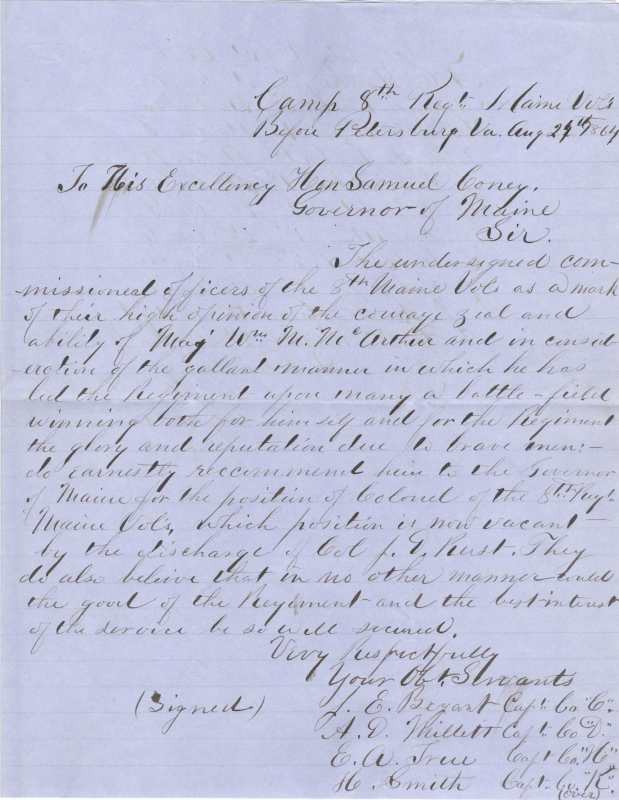 Camp 8th Regt. Maine Vols
Before Petersburg Va. Aug 27th 1864
To His Excellency Hon Samuel Coney,
Governor of Maine
Sir.
The undersigned com-
missioned officers of the 8th Maine Vols as a mark
of their high opinion of the courage zeal and
ability of Maj Wm. M. McArthur and in consid-
eration of the gallant manner in which he has
led the Regiment upon many a battle-field
winning both for himself and for the Regiment
the glory and reputation due to brave men:-
do earnestly reccommend him to the Governor
of Maine for the position of Colonel of the 8th Regt.
Maine Vols, which position is now vacant-
by the discharge of Col J. D. Rust. They
do also beleive that in no other manner could
the good of the Regiment and the best interest
of the service be so well secured.
Very Respectfully
Your Obt. Servants
(Signed)
E. Bryant Capt. Co "C".
A. D. Millett Capt. Co "D".
E. A. True Capt Co. "H"
H. Smith Capt. Co. "K".
(over)